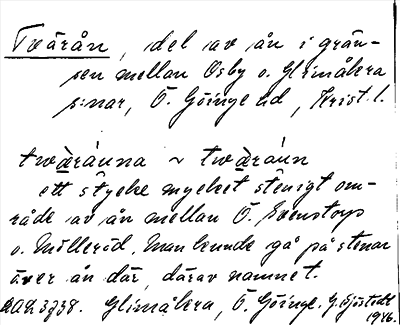 Tvärån, del av ån i grän-
sen mellan Osby o. Glimåkra
s:nar, Ö. Göinge hd, Krist. l.
twàráuna ~ twàráun
ett stycke mycket stenigt om-
råde av ån mellan Ö. Svenstorp
o. Mölleröd. Man kunde gå på stenar
över ån där, därav namnet.
Glimåkra, Ö. Göinge. G. Sjöstedt
1946.